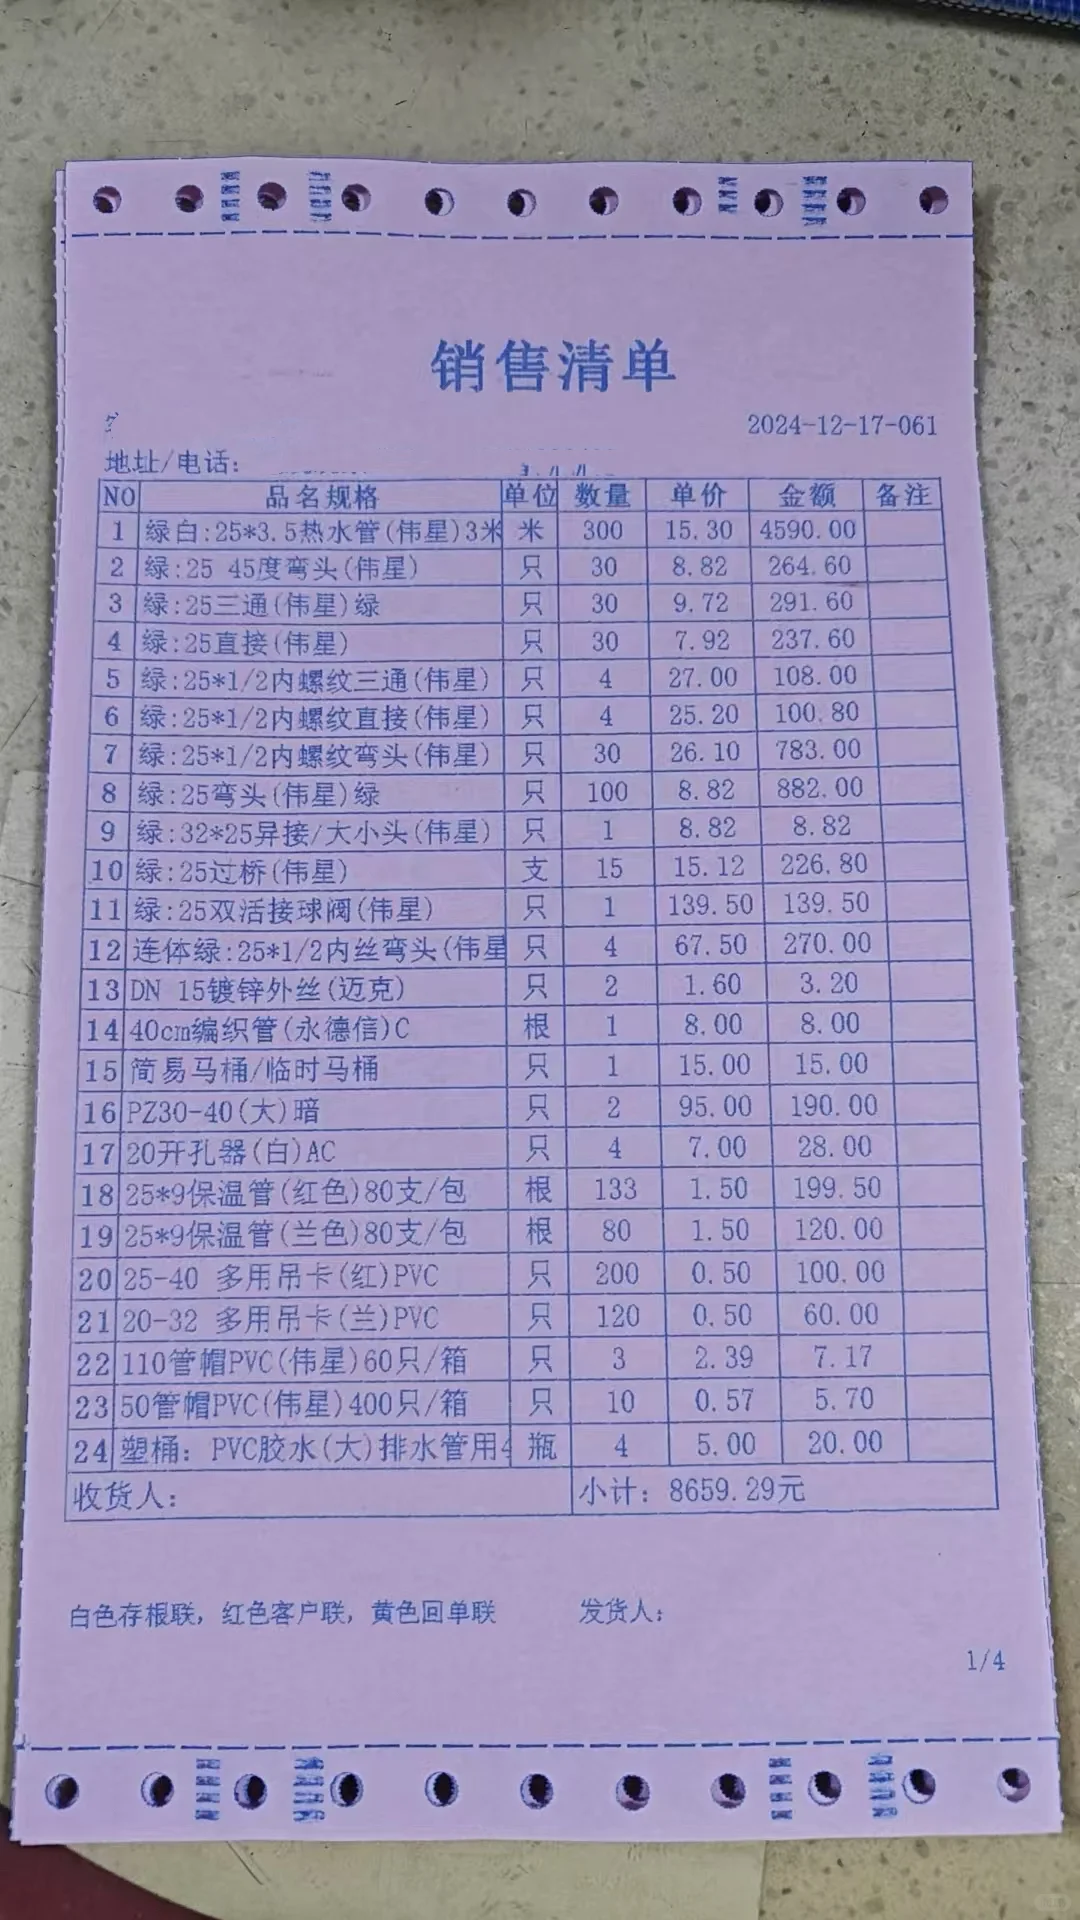 销售清单
2024-12-17-061
地址/电话:
NO 品名规格 单位 数量 单价 金额 备注
1 绿白:25*3.5热水管(伟星)3米 米 300 15.30 4590.00
2 绿:25 45度弯头(伟星) 只 30 8.82 264.60
3 绿:25三通(伟星)绿 只 30 9.72 291.60
4 绿:25直接(伟星) 只 30 7.92 237.60
5 绿:25*1/2内螺纹三通(伟星) 只 4 27.00 108.00
6 绿:25*1/2内螺纹直接(伟星) 只 4 25.20 100.80
7 绿:25*1/2内螺纹弯头(伟星) 只 30 26.10 783.00
8 绿:25弯头(伟星)绿 只 100 8.82 882.00
9 绿:32*25异接/大小头(伟星) 只 1 8.82 8.82
10 绿:25过桥(伟星) 支 15 15.12 226.80
11 绿:25双活接球阀(伟星) 只 1 139.50 139.50
12 连体绿:25*1/2内丝弯头(伟星 只 4 67.50 270.00
13 DN 15镀锌外丝(迈克) 只 2 1.60 3.20
14 40cm编织管(永德信)C 根 1 8.00 8.00
15 简易马桶/临时马桶 只 1 15.00 15.00
16 PZ30-40(大)暗 只 2 95.00 190.00
17 20开孔器(白)AC 只 4 7.00 28.00
18 25*9保温管(红色)80支/包 根 133 1.50 199.50
19 25*9保温管(兰色)80支/包 根 80 1.50 120.00
20 25-40 多用吊卡(红)PVC 只 200 0.50 100.00
21 20-32 多用吊卡(兰)PVC 只 120 0.50 60.00
22 110管帽PVC(伟星)60只/箱 只 3 2.39 7.17
23 50管帽PVC(伟星)400只/箱 只 10 0.57 5.70
24 塑桶: PVC胶水(大)排水管用 瓶 4 5.00 20.00
收货人: 小计: 8659.29元
白色存根联, 红色客户联, 黄色回单联 发货人:
1/4